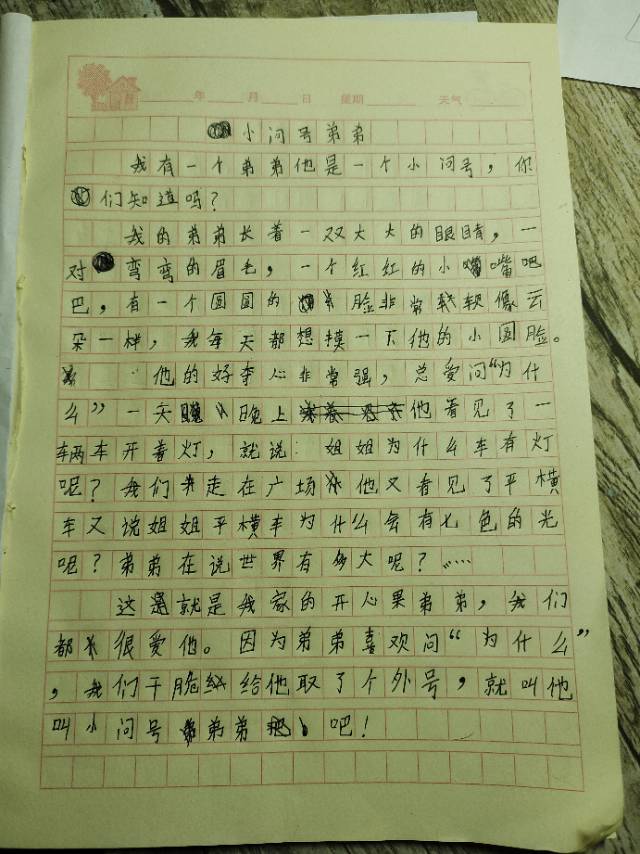 年 月 日 星期 天气
小问号弟弟
我有一个弟弟他是一个小问号，你
们知道吗？
我的弟弟长着一双大大的眼睛，一
对弯弯的眉毛，一个红红的小嘴吧
巴，有一个圆圆的脸非常软软像云
朵一样，我每天都想摸一下他的小圆脸。
他的好夸心非常强，总爱问“为什
么”一天晚上他看见了一
车两车开着灯，就说：姐姐为什么车有灯
呢？我们走在广场他又看见了平横
车又说姐姐平横车为什么会有七色的光
呢？弟弟在说世界有多大呢？……
这就是我家的开心果弟弟，我们
都很爱他。因为弟弟喜欢问“为什么”
，我们干脆给他取了个外号，就叫他
叫小问号弟弟吧！